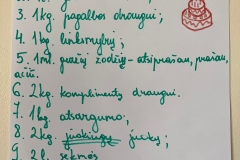 3. 1kg. pagalbos draugui;
4. 1kg. linksmybių;
5. 1ml. gražių žodžių - atsiprašau, prašau,
ačiū.
6. 2kg. komplimentų draugui.
7. 1kg. atsargumo;
8. 2kg. juokingų juokų;
9. 2l. sėkmės